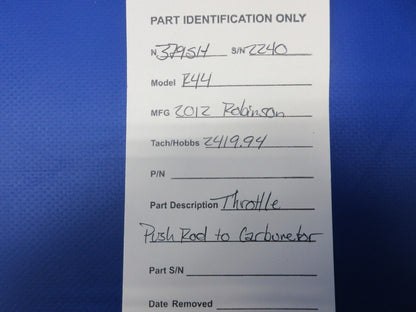 PART IDENTIFICATION ONLY
N 3795H S/N 2240
Model R44
MFG 2012 Robinson
Tach/Hobbs 2419.94
P/N
Part Description Throttle
Push Rod to Carburetor
Part S/N
Date Removed